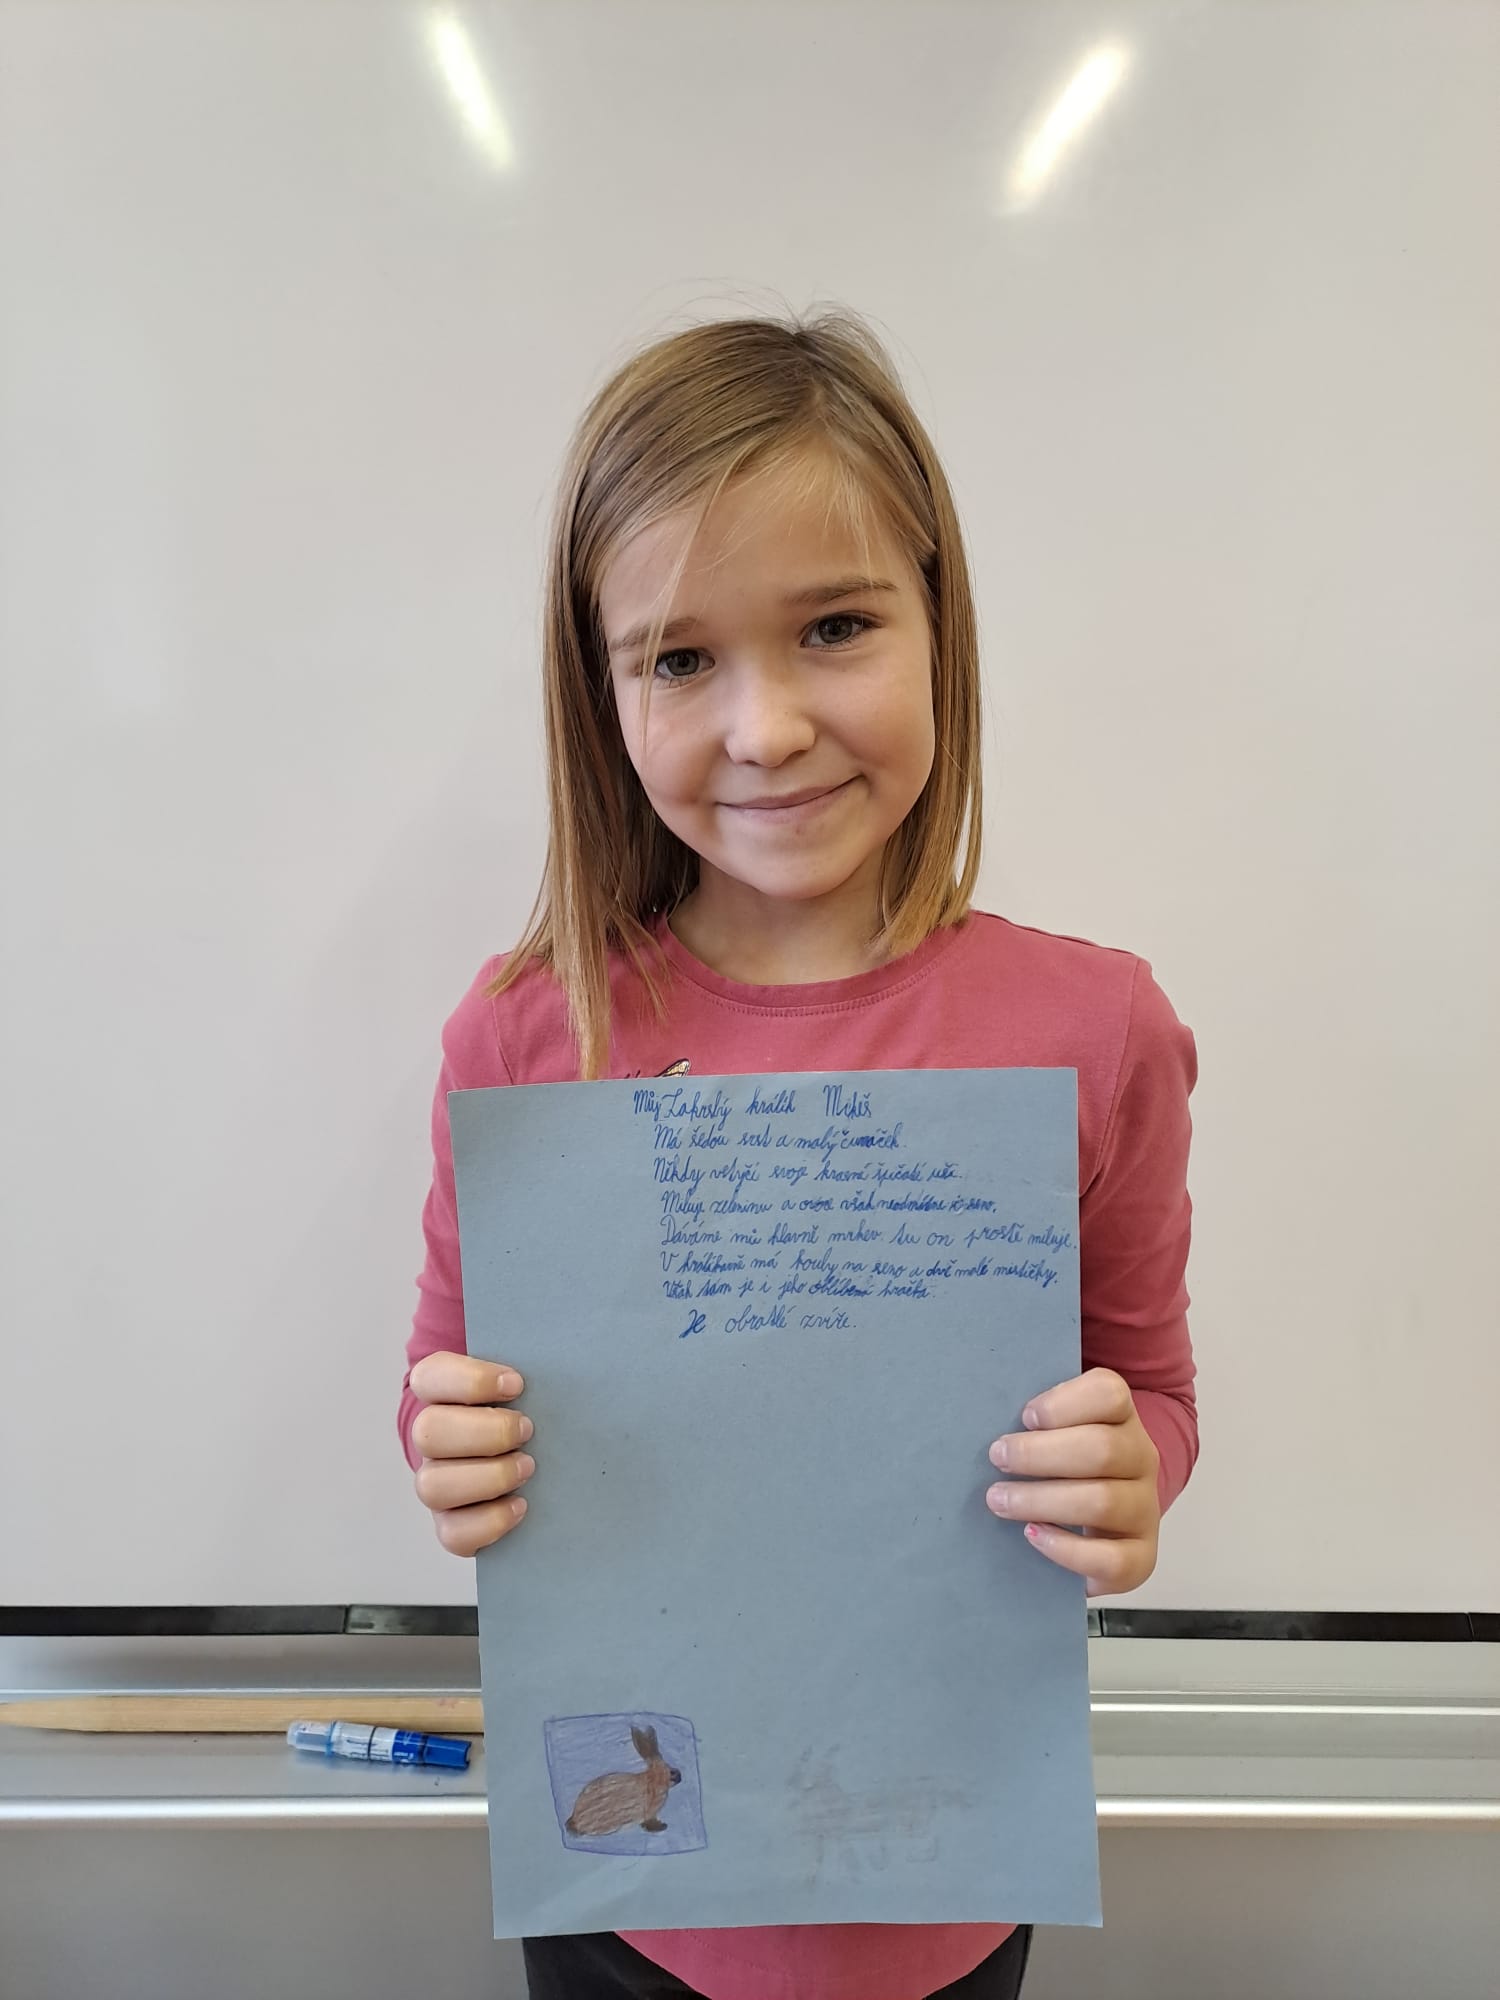 Můj Zakrslý králík Mikeš
Má šedou srst a malý čumáček.
Někdy vztyčí svoje krásná špičaté uši.
Miluje zeleninu a ovoce však neodmítne i seno.
Dáváme mu hlavně mrkev. tu on prostě miluje.
V králíkárně má houby na seno a dvě malé mističky.
Však tam je i jeho oblíbená hračka.
Je obratlé zvíře.